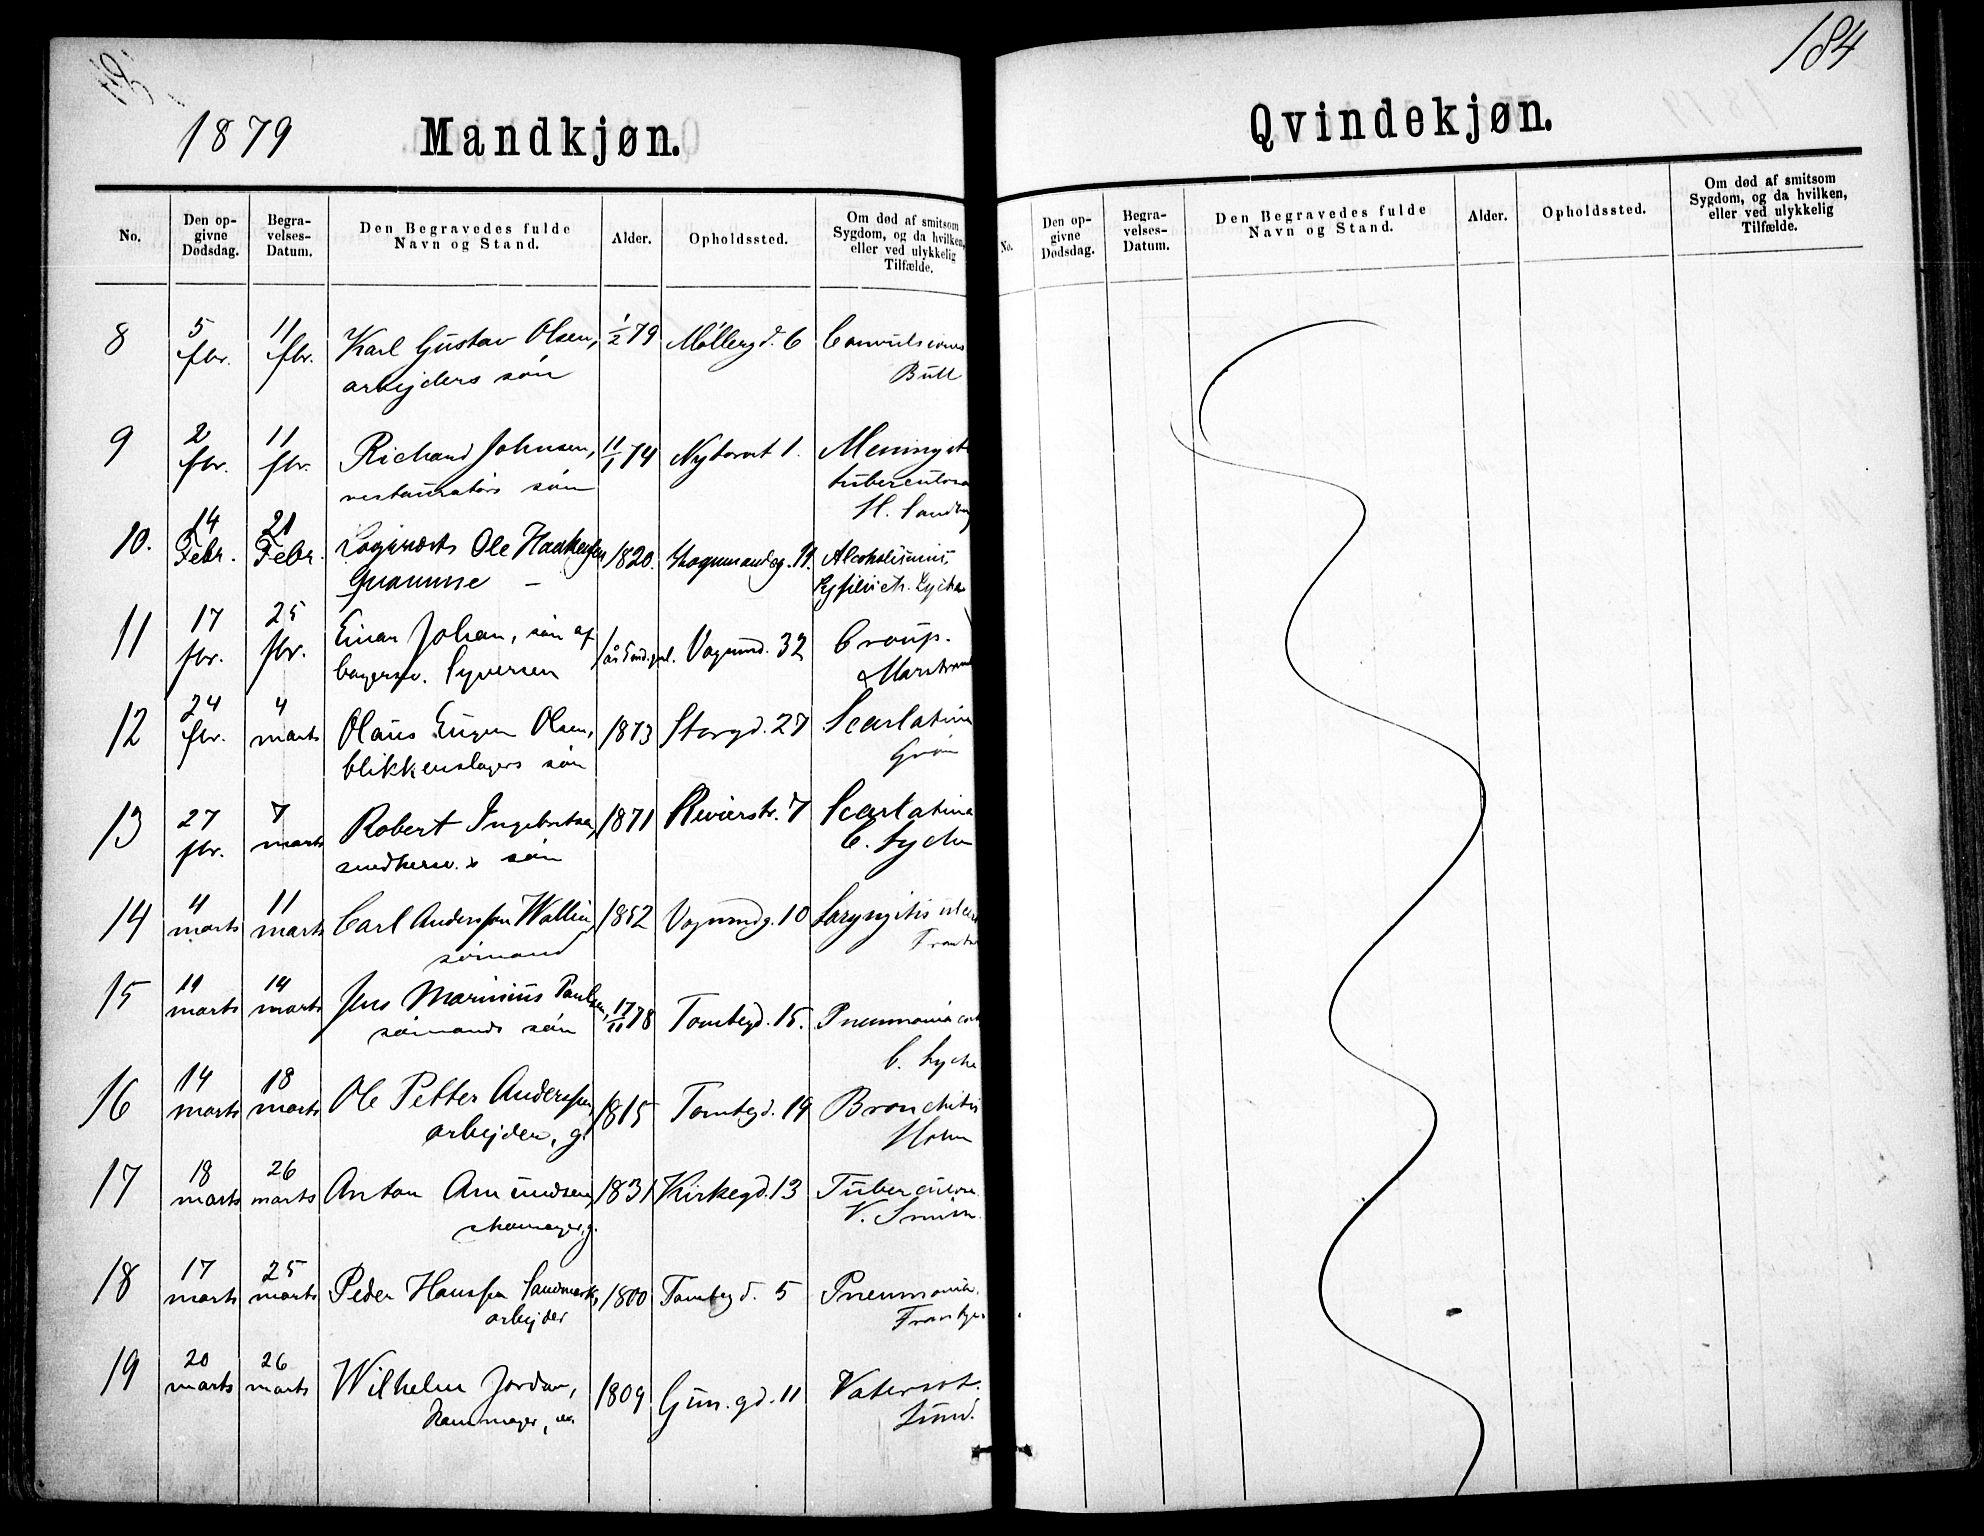 184
1879 Mandkjøn.
No. Den opgivne Dødsdag. Begravelses-Datum. Den Begravedes fulde Navn og Stand. Alder. Opholdssted. Om død af smitsom Sygdom, og da hvilken, eller ved ulykkelig Tilfælde.
8 5 fbr. 11 fbr. Karl Gustav Olsen, 1/2 79 Møllergd. 6 Convulsiones
arbejders søn Bull
9 2 fbr. 11 fbr. Richard Johnsen, 11/1 74 Nytorvet 1. Meningit
restauratørs søn tuberculosa
H. Sandberg
10. 14 Febr. 21 Febr. Logiværts Ole Haakensen 1820. Vognmandsg. 11. Alcoholismus,
Qvamme –
11 17 fbr. 25 fbr. Einar Johan, søn af Vognmd. 32 Croup.
bagersv. Syversen Marstrand
12 24 fbr. 4 marts Olaus Eugen Olsen, 1873 Storgd. 27 Scarlatina
blikkenslagers søn Grøn
13 27 fbr. 7 marts Robert Ingebretsen, 1871 Revierstr. 7 Scarlatina
snedkersv.s søn C. Lyche
14 4 marts 11 marts Carl Anderssen Wallin, 1852 Vognmdg. 10 Laryngitis
sømand
15 11 marts 14 marts Jens Marinius Paulsen, 17/11 78 Tomtegd. 15. Pneumonia
sømands søn C. Lyche
16 14 marts 18 marts Ole Petter Anderssen, 1815 Tomtegd. 19 Bronchitis
arbejder, g. Holm
17 18 marts 26 marts Anton Amundsen, 1831 Kirkegd. 13 Tuberculose
skomager, g.
18 17 marts 25 marts Peder Hanssen Sandmark, 1800 Tomtegd. 5 Pneumonia.
arbejder
19 20 marts 26 marts Wilhelm Jordan, 1809 Grün.gd. 11 Vatersot.
kammager, Lund.
Qvindekjøn.
No. Den opgivne Dødsdag. Begravelses-Datum. Den Begravedes fulde Navn og Stand. Alder. Opholdssted. Om død af smitsom Sygdom, og da hvilken, eller ved ulykkelig Tilfælde.